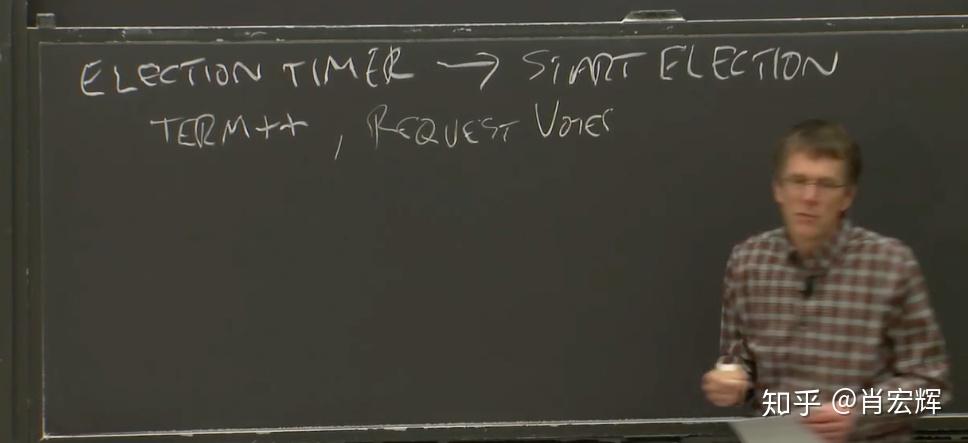 ELECTION TIMER → START ELECTION
TERM++, REQUEST VOTES
知乎 @肖宏辉